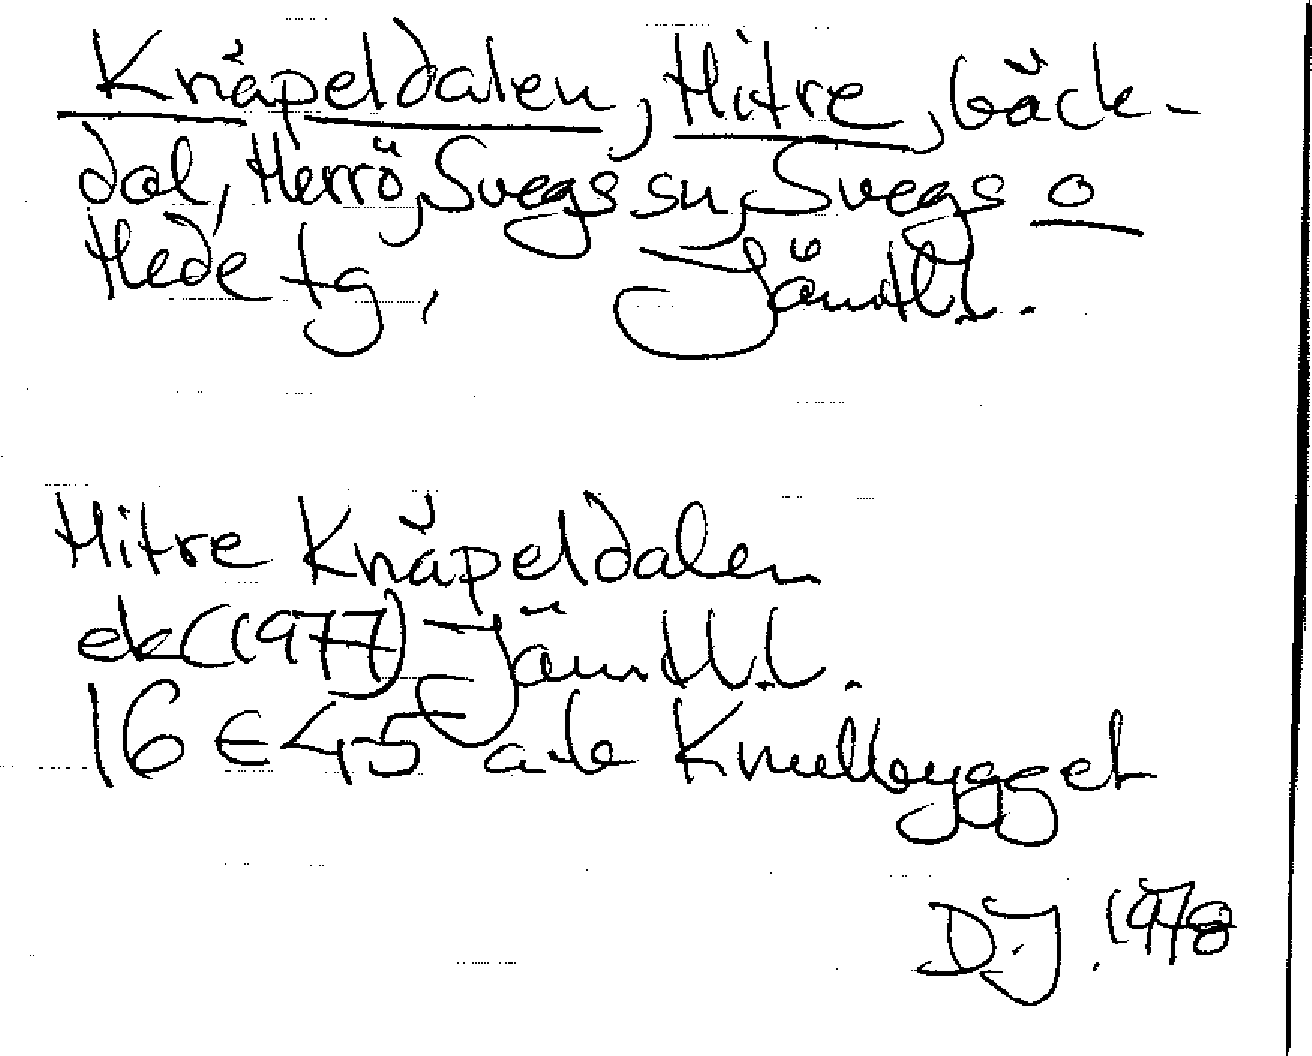 Knäpeldalen, Hitre, bäck-
dal, Herrö, Svegs sn, Svegs o
Hede tg, Jämtl.l.
Hitre Knäpeldalen
ek (1977) Jämtl.l.
16 E 45 ab Knullbygget
D.J. 1978